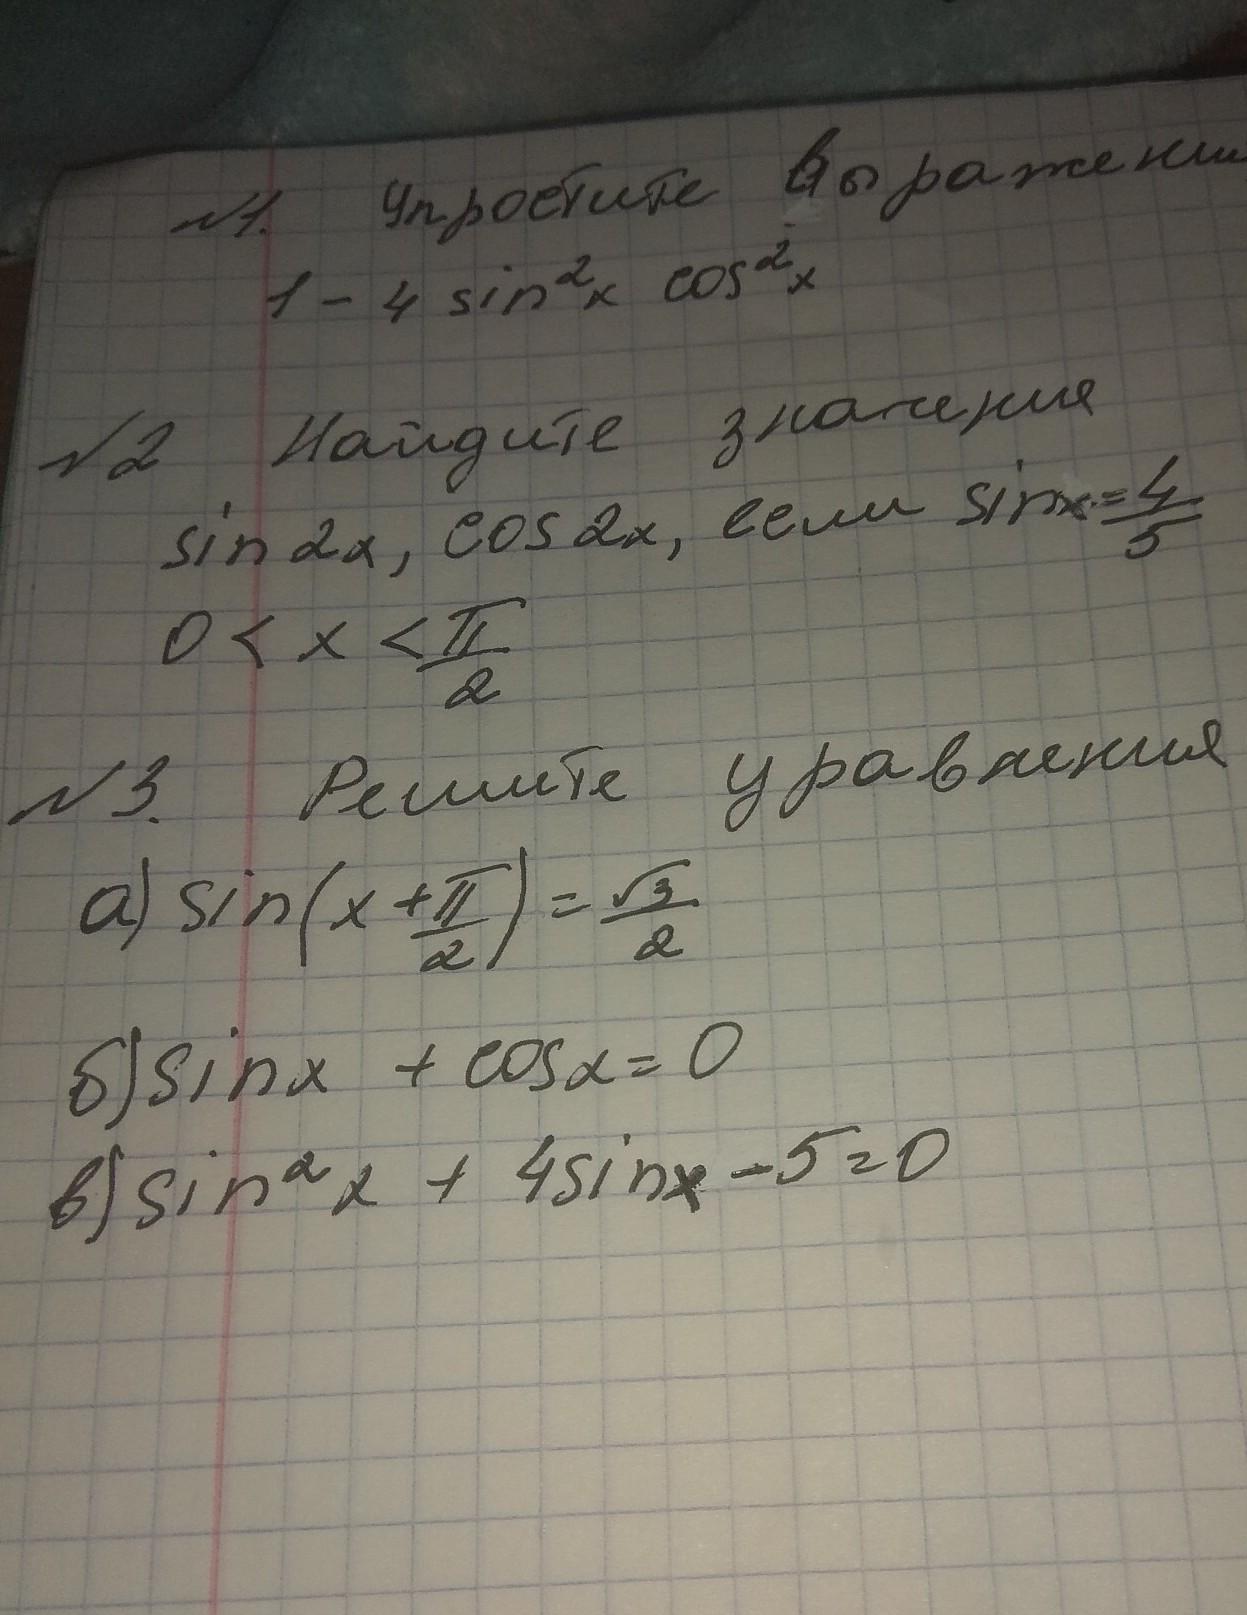 №1. Упростите выражени
1 - 4 sin²x cos²x
№2 Найдите значения
sin 2x, cos 2x, если sin x = 4/5
0 < x < π/2
№3. Решите уравнения
а) sin(x + π/2) = √3/2
б) sin x + cos x = 0
в) sin²x + 4 sin x - 5 = 0